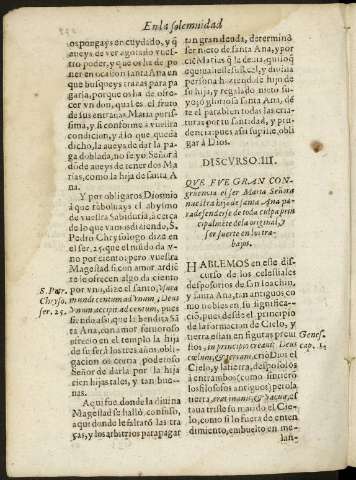 En la solemnidad
os pongays en cuydado, y q̃
aueys de ver agotado vuestro
poder, y que os ha de poner
en ocasion santa Ana en
que busqueys trazas para pagarla,
porque os ha de ofrecer
vn don, qual es el fruto
de sus entrañas Maria purissima,
y si conforme à vuestra
condicion, y à lo que queda
dicho, la aueys de dar la paga
doblada, no se yo Señor a
dõde aueys de tener dos Marias,
como la hija de santa
Ana.
Y por obligaros Dios mio
à que reboluays el abysmo
de vuestra Sabiduria, acerca
de lo que vamos diziendo, S.
Pedro Chrysologo dize en
el ser. 25. que el mũdo da vno
por ciento; pero vuestra
Magestad si con amor ardiẽte
le ofrecen algo da ciento
por vno, dize el santo,
mundi centum ad vnum, Deus
vnum accipit ad centum, pues
S. Petr.
Chryso.
ser. 25.
siendo assi, que la bendita Santa
Ana, con amor feruoroso
ofrecio en el templo la hija
de su ser à los tres años, obligacion
os corra poderoso
Señor de darla por la hija
cien hijas tales, y tan buenas.
Aqui fue donde la diuina
Magestad se hallò confuso,
aqui donde le faltarõ las trazas,
y los arbitrios para pagar
tan gran deuda, determinò
ser nieto de santa Ana, y por
persona haziendole hijo de
su hija, y regalado nieto suyo;
ò gloriosa santa Ana, dẽte
el parabien todas las criaturas
por tu santidad, y prudencia:
pues assi supiste obligar
à Dios.
DISCVRSO. III.
QVE FVE GRAN CONgruencia
el ser Maria Señora
nuestra hija de santa Ana para
defenderse de toda culpa principalmẽte
de la original, y
ser fuerte en los trabajos.
HABLEMOS en este discurso
de los celestiales
desposorios de san Ioachin,
y santa Ana, tan antiguos como
nobles en su significacio,
pues desde el principio
de la formacion de Cielo, y
tierra estàn en figuras preuistos,
in principio creauit Deus
cœlum, & terram, criò Dios el
Genes.
cap. 1.
Cielo, y la tierra, desposòlos
à entrambos (como sintierõ
los filosofos antiguos) pero la
tierra, erat inanis & vacua, estaua
triste su marido el Cielo,
como si lo fuera de entendimiento,
embuelto en me-
lan-